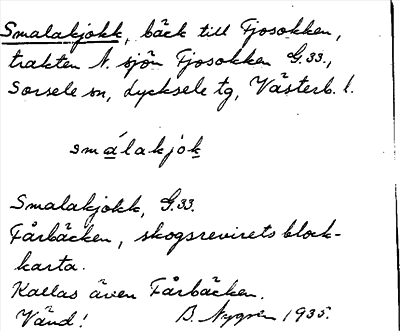 Smalakjokk, bäck till Fjosokken,
trakten N. sjön Fjosokken G.33.,
Sorsele sn, Lycksele tg, Västerb. l.
smálakjok
Smalakjokk, G.33.
Fårbäcken, skogsrevirets block-
karta.
Kallas även Fårbäcken.
Vänd! B. Nygren 1935.